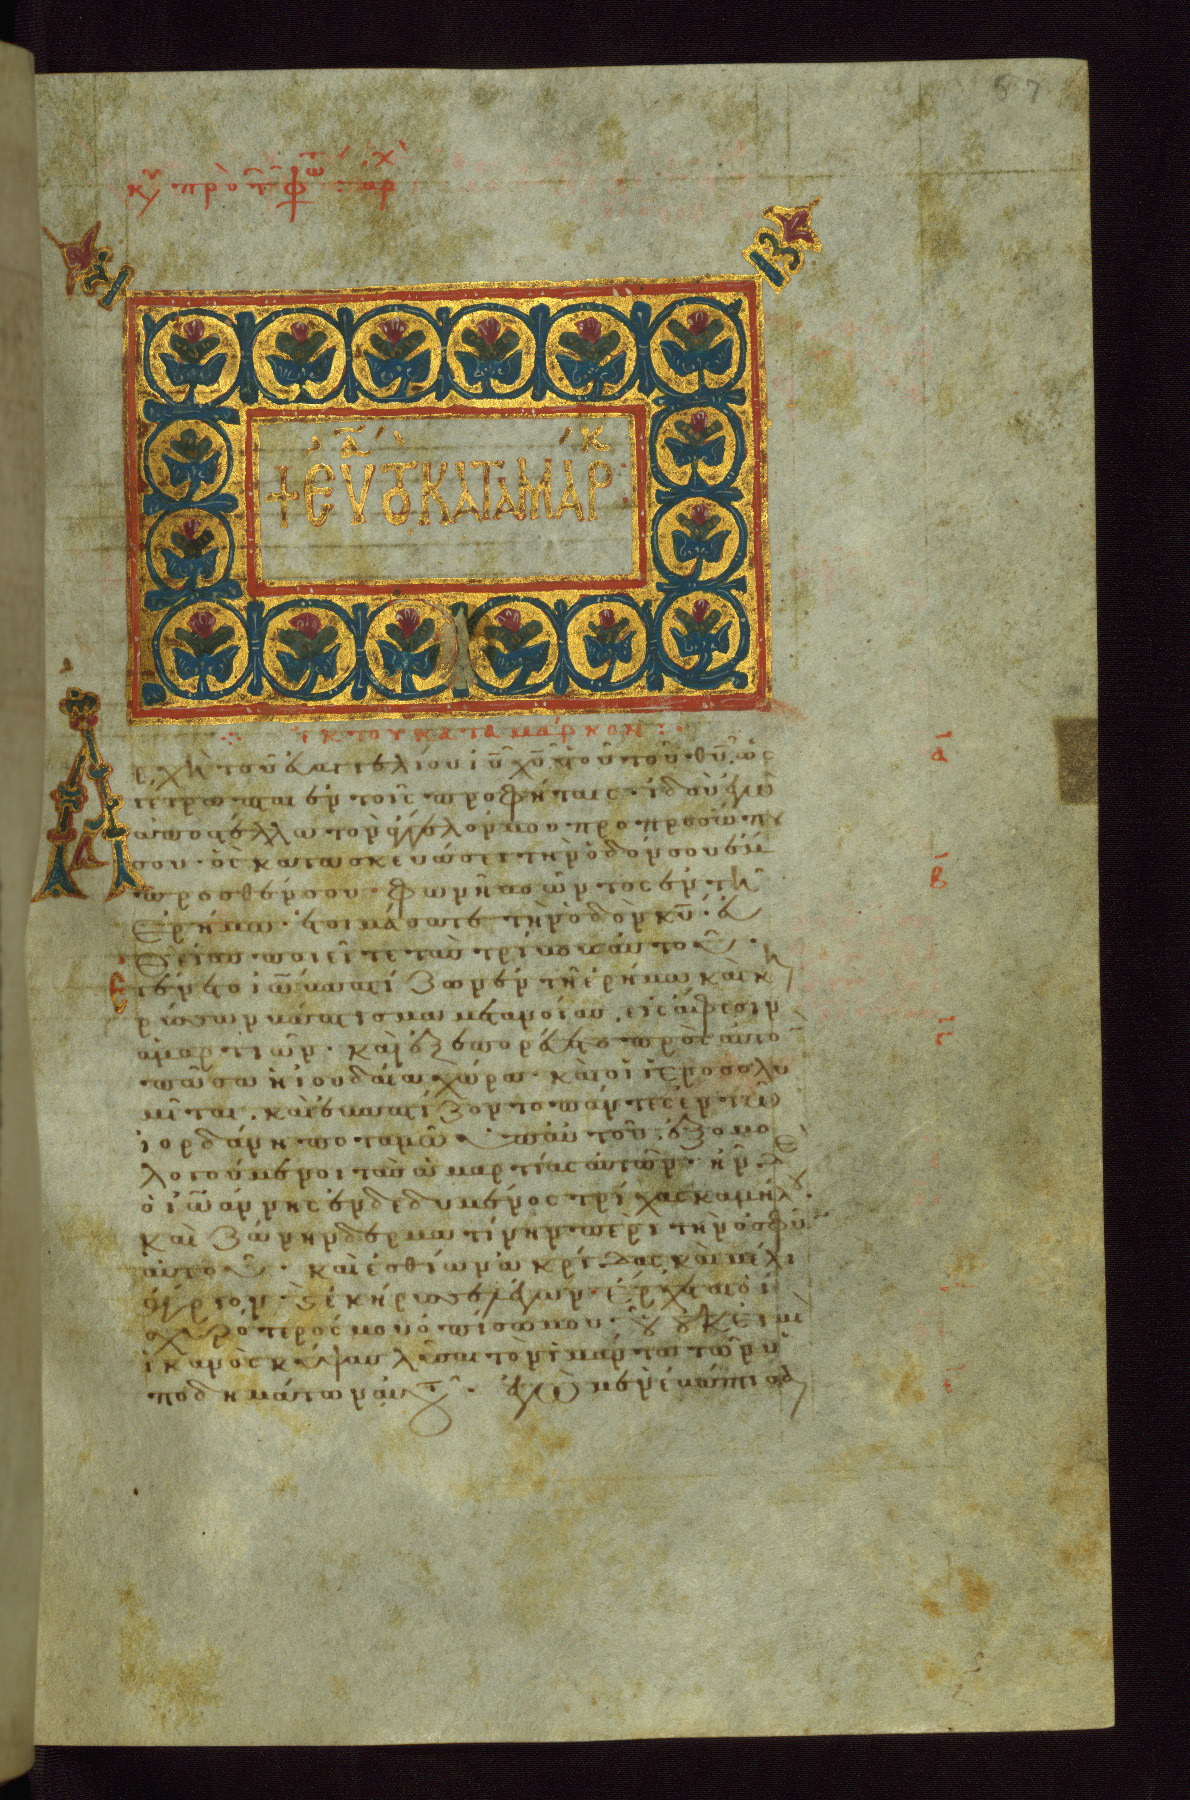 57
κυ προ τ φω : αρχ
+ ἐυα ὁ κατὰ μάρκ :
ἐκ τοῦ κατὰ μάρκον :
Ἀρχὴ τοῦ ἐυαγγελίου ιυ χυ υἱοῦ τοῦ θυ, ὡς
γέγραπται ἐν τοῖς προφήταις · ἰδοὺ ἐγὼ
ἀποστέλλω τὸν ἄγγελόν μου πρὸ προσώπου
σου · ὃς κατασκευάσει τὴν ὁδόν σου ἔμ
προσθέν σου · φωνὴ βοῶντος ἐν τῆ
ἐρήμω · ἑτοιμάσατε τὴν ὁδὸν κυ · ἐυ
θείας ποιεῖτε τὰς τρίβους ἀυτοῦ ·
Ἐγένετο ἰω βαπτίζων ἐν τῆ ἐρήμω καὶ κη
ρύσσων βάπτισμα μετανοίας, εἰς ἄφεσιν
ἁμαρτιῶν · καὶ ἐξεπορεύετο πρὸς ἀυτὸ
πᾶσα ἡ ἰουδαία χώρα · καὶ οἱ ἱεροσολυ
μῖται · καὶ ἐβαπτίζοντο πάντες ἐν τῶ
ἰορδάνη ποταμῶ ὑπ ἀυτοῦ · ἐξομο
λογούμενοι τὰς ἁμαρτίας ἀυτῶν · ἦν δὲ
ὁ ἰωάννης ἐνδεδυμένος τρίχας καμήλου ·
καὶ ζώνην δερματίνην περὶ τὴν ὀσφὺν
ἀυτοῦ · καὶ ἐσθίων ἀκρίδας καὶ μέλι
ἄγριον · καὶ ἐκήρυσσε λέγων · ἔρχεται ὁ ἰ
σχυρότερός μου ὀπίσω μου · οὗ οὐκ εἰμὶ
ἱκανὸς κύψας λῦσαι τὸν ἱμάντα τῶν ὑ
ποδημάτων ἀυτοῦ · ἐγὼ μὲν ἐβάπτισα
α
β